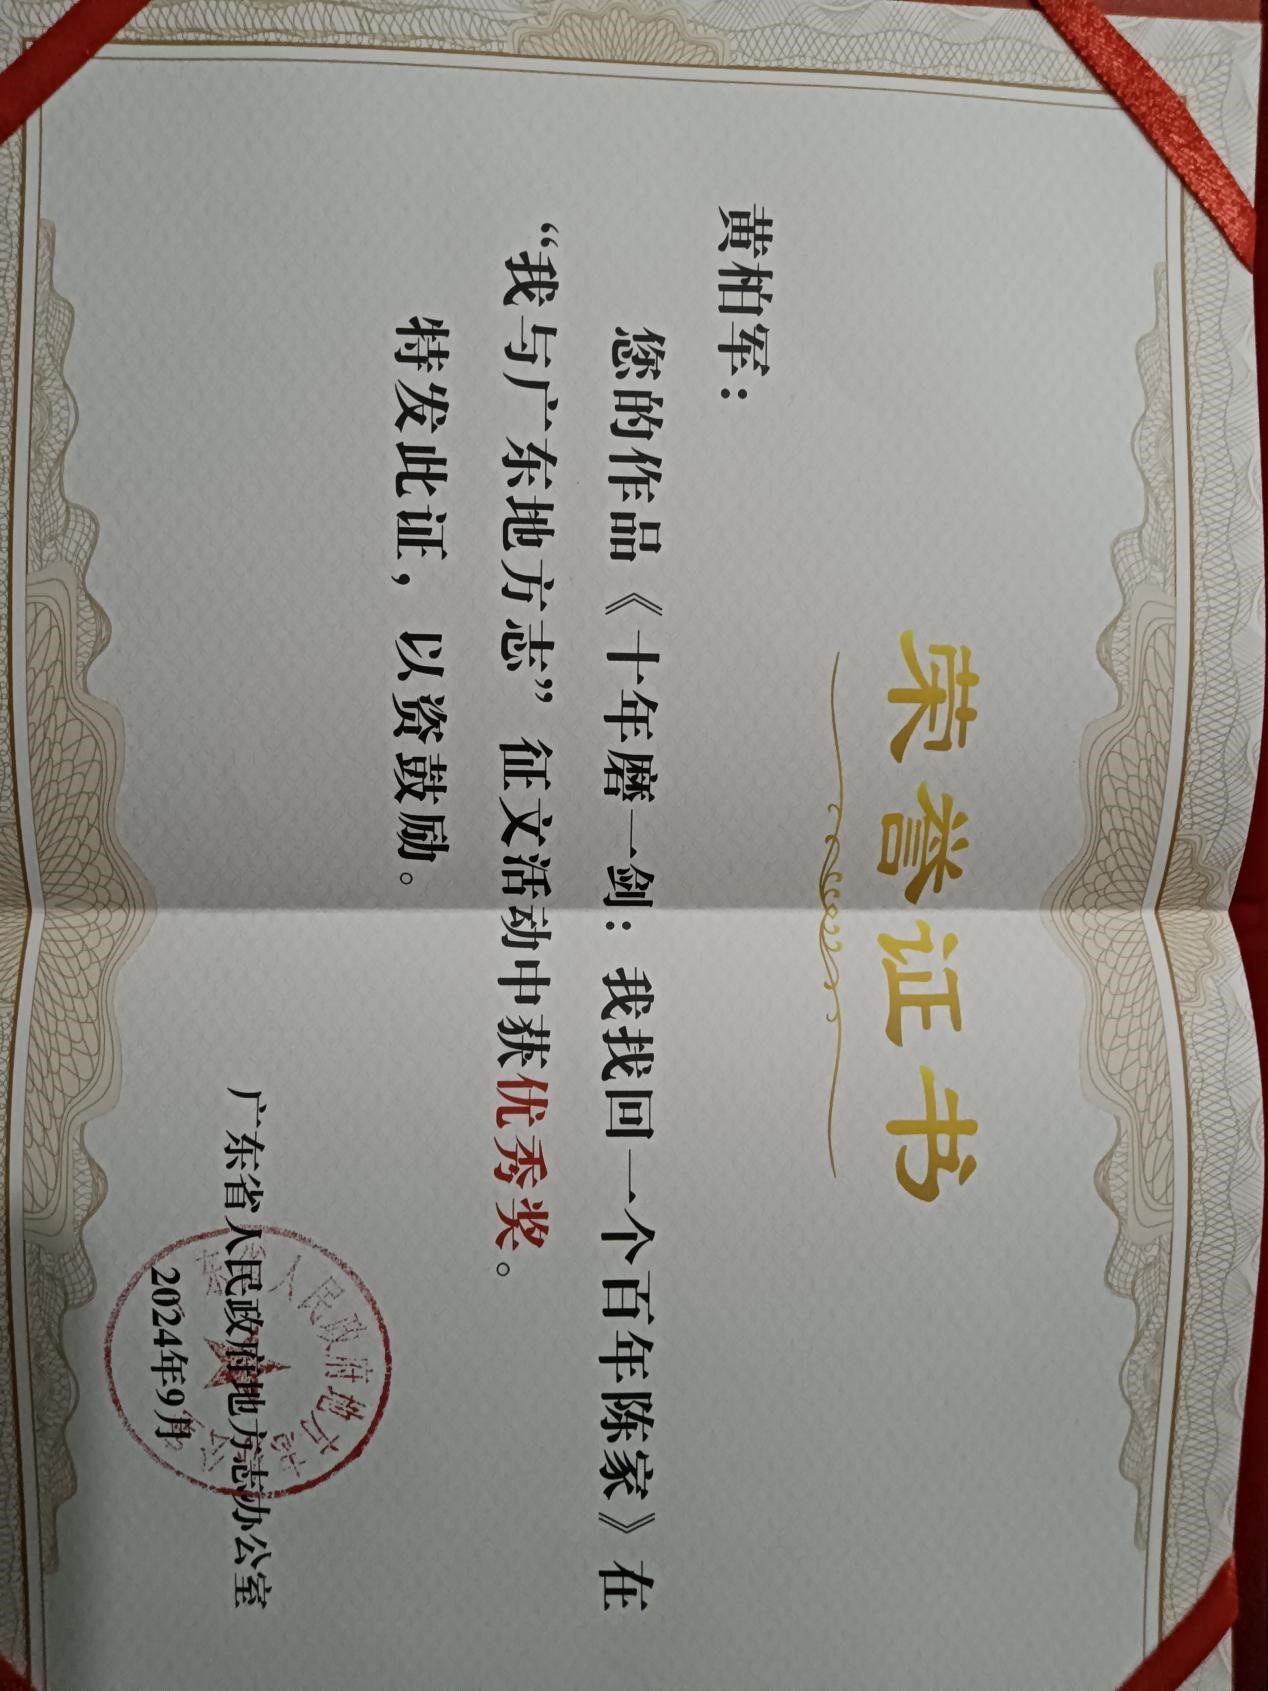 荣誉证书
黄柏军：
您的作品《十年磨一剑：我找回一个百年陈家》在
“我与广东地方志”征文活动中获优秀奖。
特发此证，以资鼓励。
广东省人民政府地方志办公室
2024年9月